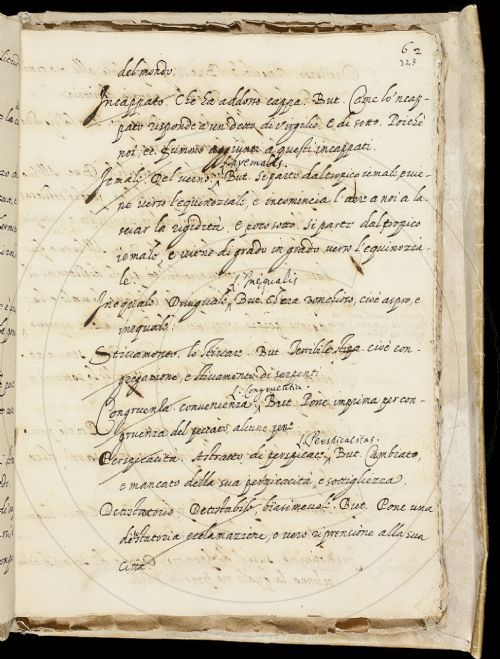 62
327
del mondo.
Incappato. Che ha addosso cappa. But. Come lo 'ncap-
pato risponde a un detto di Virgilio. E di sotto. Poiché
noi, ec. fummo aggiunti a questi incappati.
Hyemalis.
Iemali. Del verno. But. Si parte dal tropico iemali, e vie-
ne verso l'equinoziali, e incomincia l'aere a noi a la-
sciar la rigidità, e poco sotto. Si parte dal tropico
iemale, e viene di grado in grado verso l'equinozia-
le.
Inequalis
Inequale. Disuguale. But. Ch'era sconcio, cioè aspro, e
inequale.
Stivamento. lo stivare. But. Terribile stipa. cioè con-
gregazione, e stivamento di serpenti
Congruentia.
Congruenza. convenienza. But. Pone imprima per con-
gruenza del peccato, alcune pene
Perspicacitas.
Perspicacità. Astratto di perspicace. But. Cambiato,
e mancato della sua perspicacità, e sottigliezza.
Detestatorio. Detestabile biasimevole. But. Pone una
detestatoria esclamazione, o vero riprensione alla sua
Città